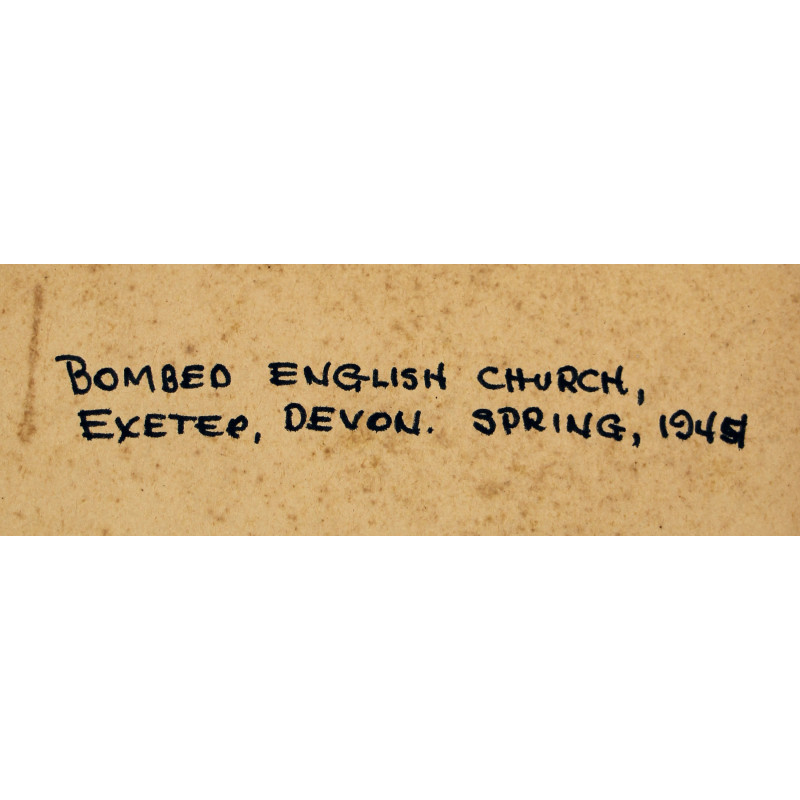 BOMBED ENGLISH CHURCH,
EXETER, DEVON. SPRING, 1945